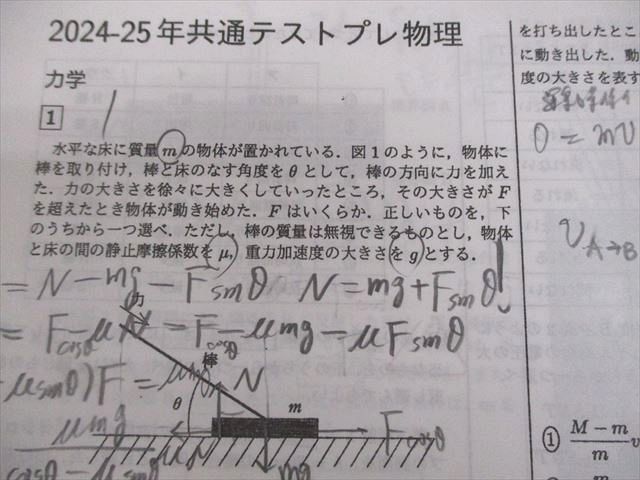 2024-25年共通テストプレ物理
力学
1
水平な床に質量mの物体が置かれている．図1のように，物体に
棒を取り付け，棒と床のなす角度をθとして，棒の方向に力を加え
た．力の大きさを徐々に大きくしていったところ，その大きさがF
を超えたとき物体が動き始めた．Fはいくらか．正しいものを，下
のうちから一つ選べ．ただし，棒の質量は無視できるものとし，物体
と床の間の静止摩擦係数をμ，重力加速度の大きさをgとする．
= N - mg - Fsinθ N = mg + Fsinθ
力
= Fcosθ - μN = Fcosθ - μmg - μFsinθ
棒
μsinθ)F = μmg N
θ
m
μmg
Fcosθ
cosθ - μsinθ μN
mg
を打ち出したとこ
に動き出した．動
度の大きさを表す
0 = mv
v A→B
① M-m
m v
② m